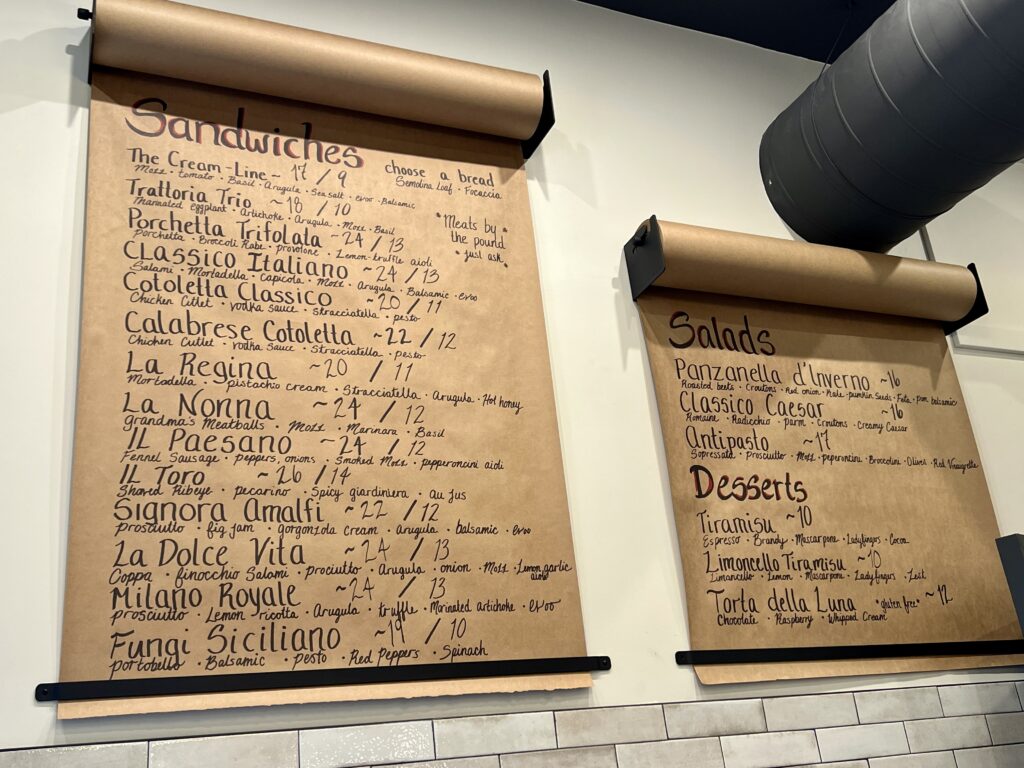 Sandwiches
choose a bread
Semolina Loaf · Focaccia
The Cream-Line ~ 17 / 9
Mozz · tomato · Basil · Arugula · Sea salt · evoo · Balsamic
Trattoria Trio ~ 18 / 10
Marinated eggplant · Artichoke · Arugula · Mozz · Basil
*Meats by*
the pound
*just ask*
Porchetta Trifolata ~ 24 / 13
Porchetta · Broccoli Rabe · provolone · Lemon-truffle aioli
Classico Italiano ~ 24 / 13
Salami · Mortadella · Capicola · Mozz · Arugula · Balsamic · evoo
Cotoletta Classico ~ 20 / 11
Chicken Cutlet · vodka sauce · Stracciatella · pesto
Calabrese Cotoletta ~ 22 / 12
Chicken Cutlet · vodka sauce · Stracciatella · pesto
La Regina ~ 20 / 11
Mortadella · pistachio cream · Stracciatella · Arugula · Hot honey
La Nonna ~ 24 / 12
grandma's Meatballs · Mozz · Marinara · Basil
IL Paesano ~ 24 / 12
Fennel Sausage · peppers, onions · Smoked Mozz · pepperoncini aioli
IL Toro ~ 26 / 14
Shaved Ribeye · pecarino · Spicy giardiniera · au jus
Signora Amalfi ~ 22 / 12
prosciutto · fig jam · gorgonzola cream · Arugula · balsamic · evoo
La Dolce Vita ~ 24 / 13
Coppa · finocchio Salami · prociutto · Arugula · onion · Mozz · Lemon garlic aioli
Milano Royale ~ 24 / 13
prosciutto · Lemon-ricotta · Arugula · truffle · Marinated artichoke · evoo
Fungi Siciliano ~ 19 / 10
portobello · Balsamic · pesto · Red Peppers · Spinach
Salads
Panzanella d'Inverno ~ 16
Roasted beets · Croutons · Red onion · Kale · pumpkin Seeds · Feta · pom. balsamic
Classico Caesar ~ 16
Romaine · Radicchio · parm · Croutons · Creamy Caesar
Antipasto ~ 17
Sopressata · Prosciutto · Mozz · peperontini · Broccolini · Olives · Red Vinaigrette
Desserts
Tiramisu ~ 10
Espresso · Brandy · Mascarpone · Ladyfingers · Cocoa
Limoncello Tiramisu ~ 10
Limoncello · Lemon · Mascarpone · Ladyfingers · Zest
Torta della Luna *gluten free* ~ 12
Chocolate · Raspberry · Whipped Cream